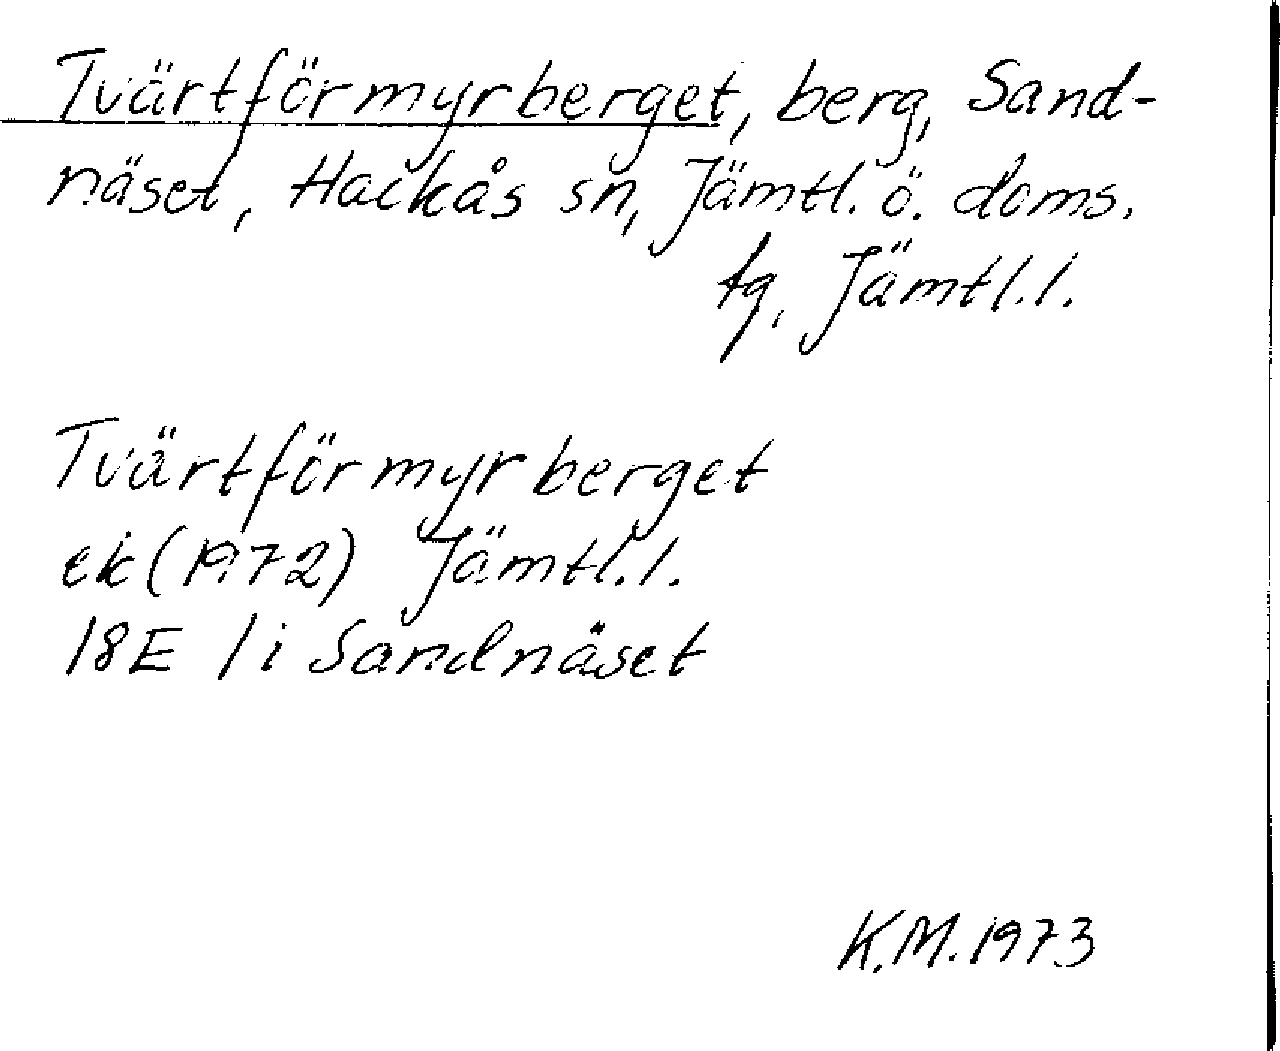 Tvärtförmyrberget, berg, Sand-
näset, Hackås sn, Jämtl. ö. doms.
fg, Jämtl.l.
Tvärtförmyrberget
ek(1972) Jämtl.l.
18E 1i Sandnäset
K.M.1973